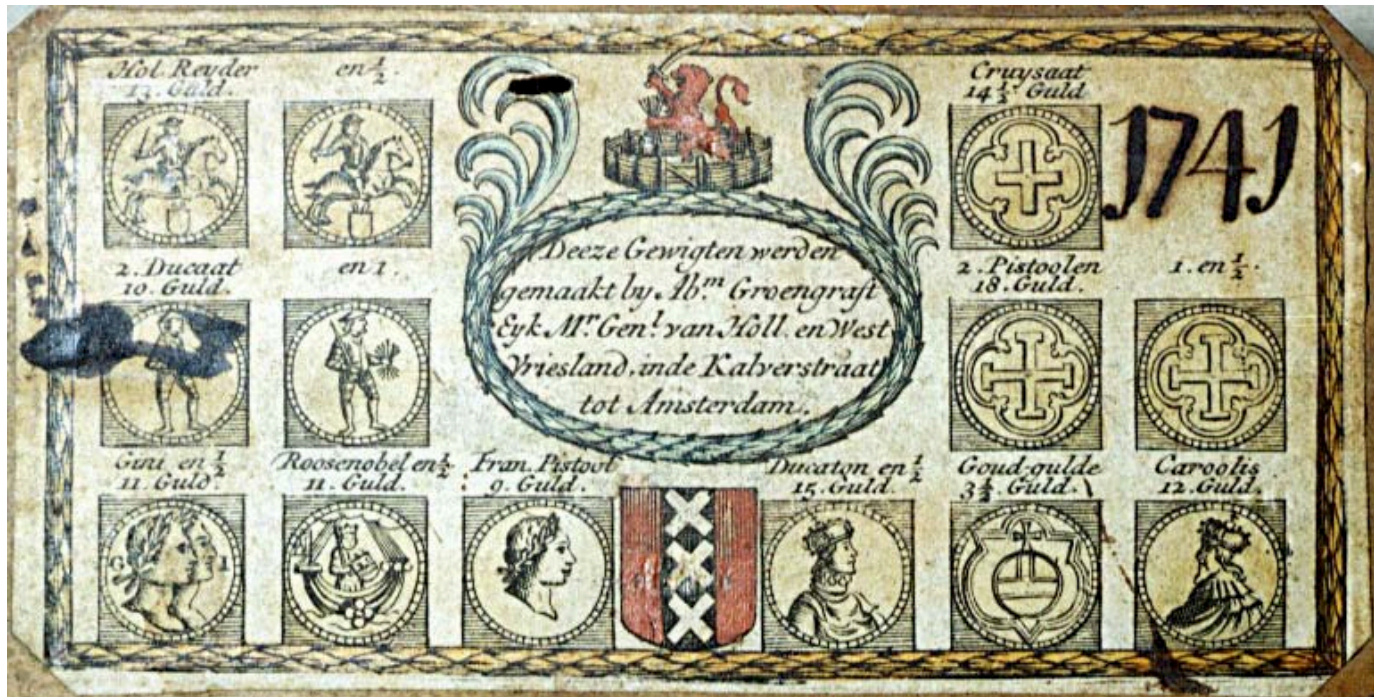 Hol. Reyder
13. Guld.
en ½.
Cruysaat
14 ½ Guld
1741
Deeze Gewigten werden
gemaakt by Ab.m Groengraft
Eyk M.r Gen.l van Holl. en West
Vriesland, inde Kalverstraat
tot Amsterdam.
2. Ducaat
10. Guld.
en 1.
2. Pistoolen
18. Guld.
1. en ½.
Gini en ½
11. Guld
Roosenobel en ½
11. Guld.
Fran. Pistool
9. Guld.
Ducaton en ½
15. Guld.
Goud-gulde
3 ½. Guld.
Caroolis
12. Guld.
G I